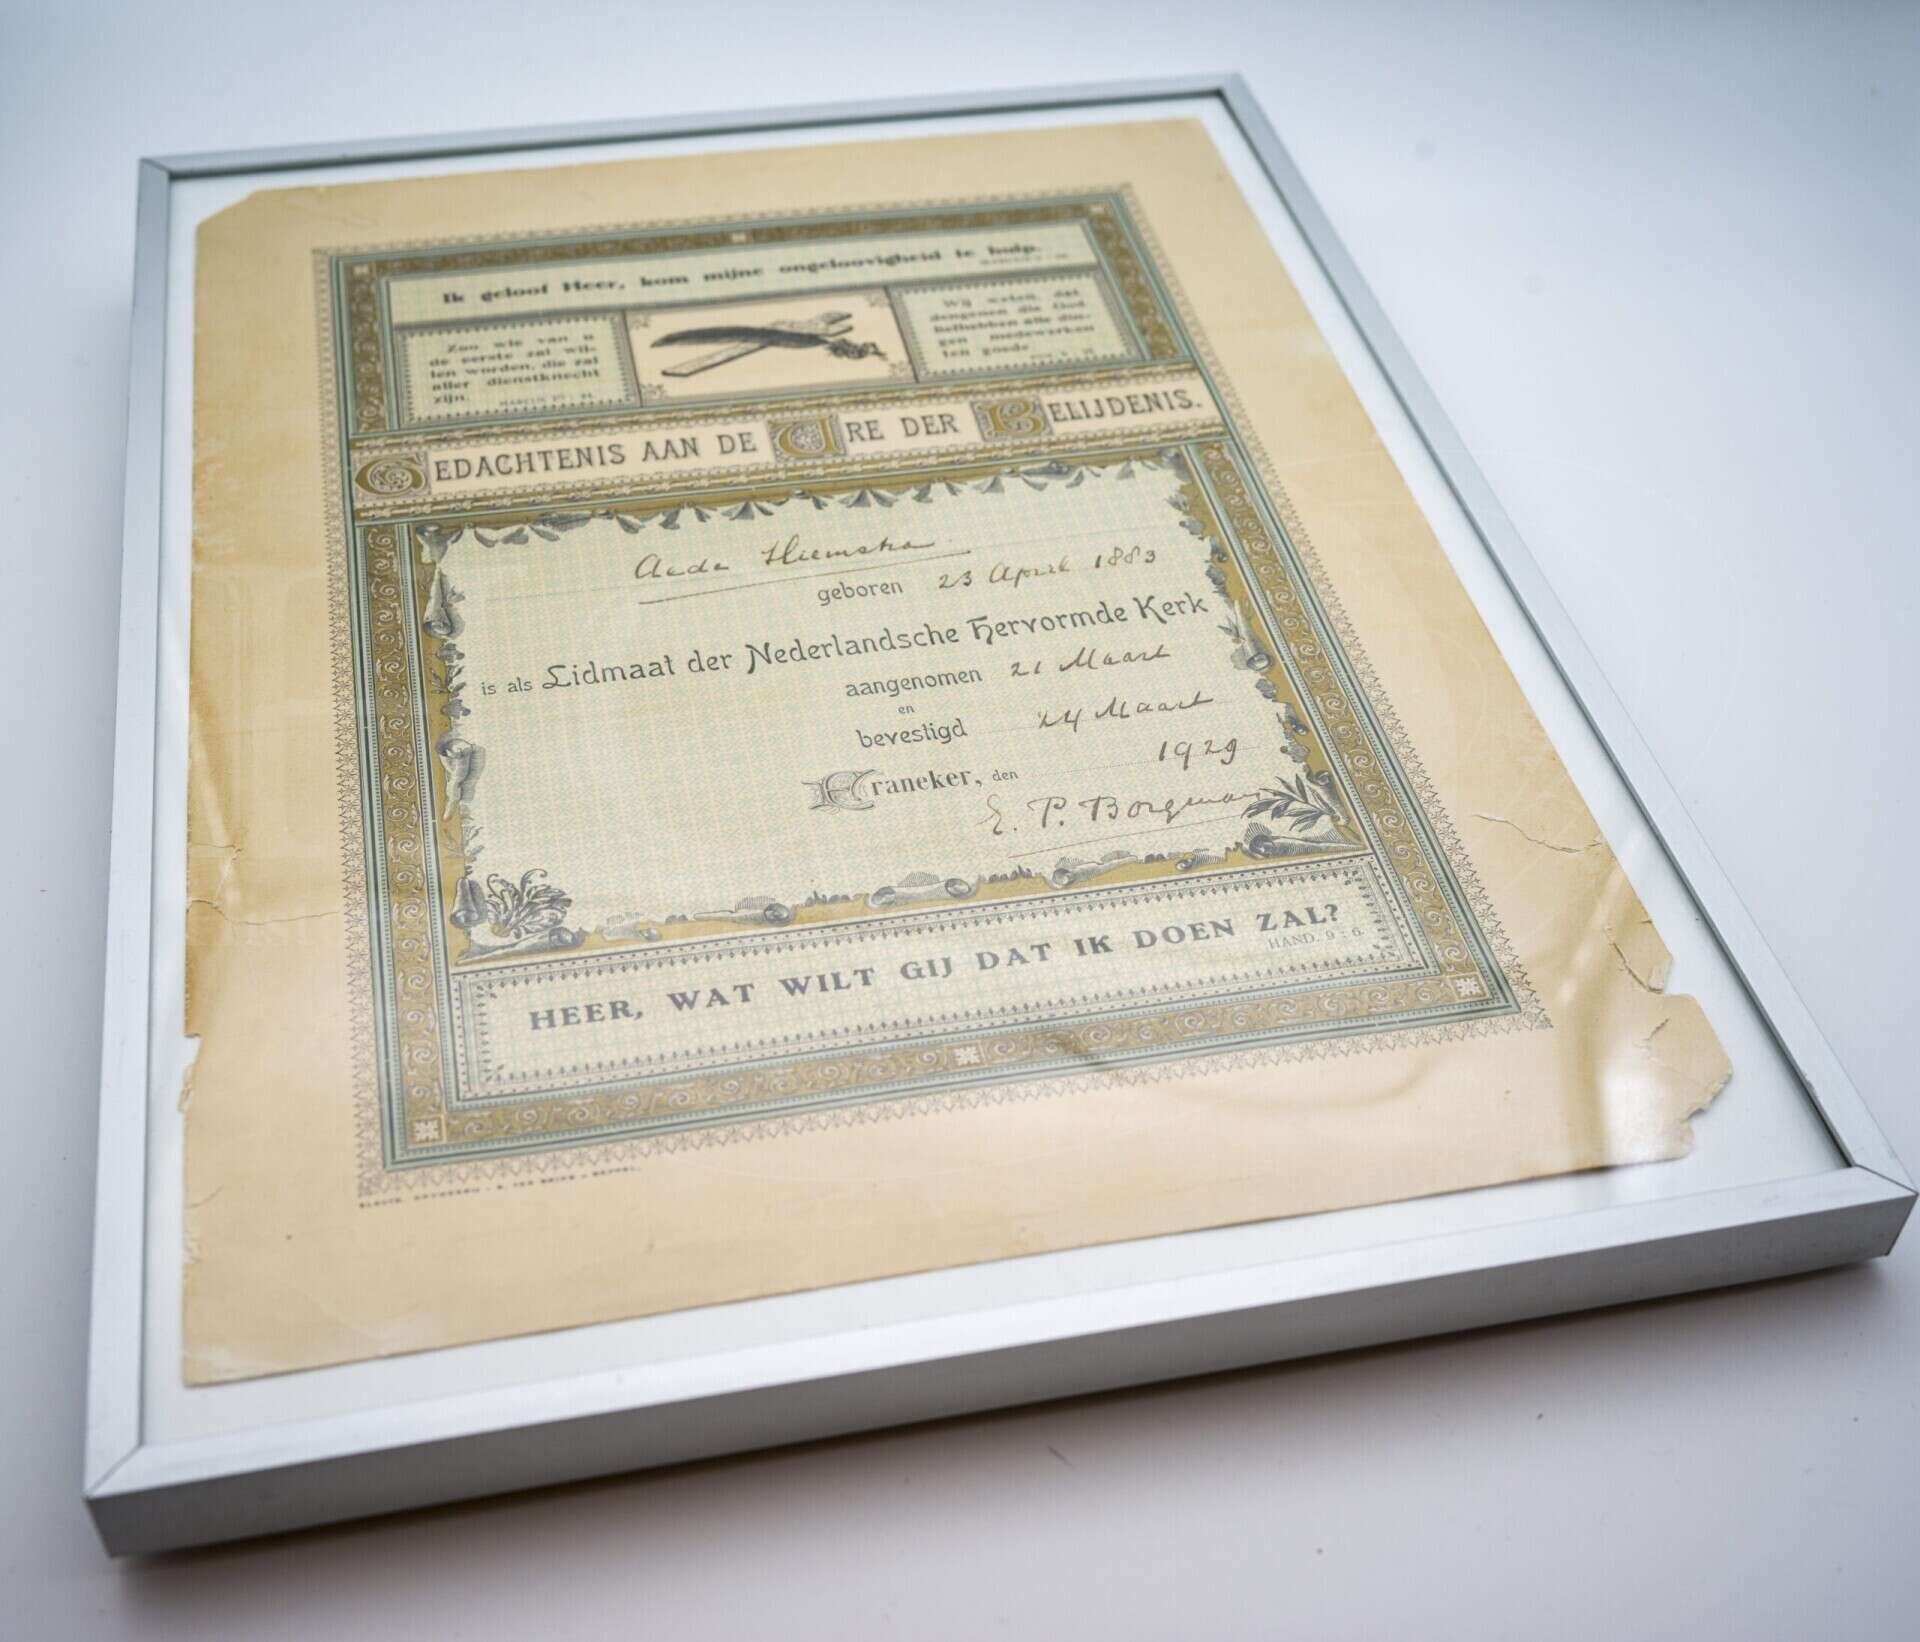 Ik geloof Heer, kom mijne ongeloovigheid te hulp.
Zoo wie van u
de eerste zal wil-
len worden, die zal
aller dienstknecht
zijn.
Wij weten, dat
dengenen die God
liefhebben alle din-
gen medewerken
ten goede
GEDACHTENIS AAN DE URE DER BELIJDENIS.
Hiemstra
geboren 23 April 1883
is als Lidmaat der Nederlandsche Hervormde Kerk
aangenomen 21 Maart
en
bevestigd 24 Maart
Franeker, den 1929
E. P. Borgman
HEER, WAT WILT GIJ DAT IK DOEN ZAL?
HAND. 9 : 6.